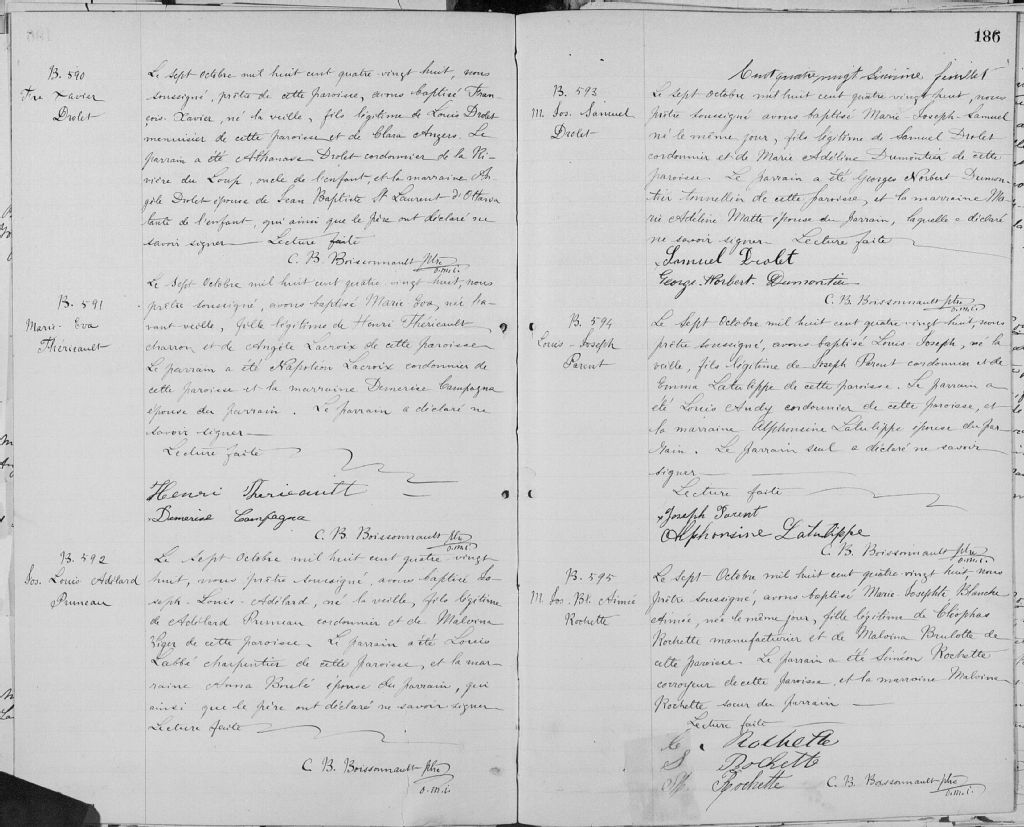 B. 590
Frs Xavier
Drolet
Le sept Octobre mil huit cent quatre vingt huit, nous
soussigné, prêtre de cette paroisse, avons baptisé Fran-
çois Xavier, né la veille, fils légitime de Louis Drolet
menuisier de cette paroisse et de Clara Angers. Le
parrain a été Athanase Drolet cordonnier de la Ri-
vière du Loup, oncle de l'enfant, et la marraine An-
gèle Drolet épouse de Jean Baptiste St Laurent d'Ottawa
tante de l'enfant, qui ainsi que le père ont déclaré ne
savoir signer Lecture faite
C. B. Boissonnault ptre
o.m.i.
B. 591
Marie-Eva
Thériault
Le Sept Octobre mil huit cent quatre vingt huit, nous
prêtre soussigné, avons baptisé Marie Eva, née l'a-
vant veille, fille légitime de Henri Thériault
charron et de Angèle Lacroix de cette paroisse
Le parrain a été Napoléon Lacroix cordonnier de
cette paroisse et la marraine Démerise Campagna
épouse du parrain. Le parrain a déclaré ne
savoir signer
Lecture faite
Henri Thérieault
Demerise Campagna
C. B. Boissonnault ptre
o.m.i.
B. 592
Jos. Louis Adélard
Pruneau
Le Sept Octobre mil huit cent quatre-vingt
huit, nous prêtre soussigné, avons baptisé Jo-
seph-Louis-Adélard, né la veille, fils légitime
de Adélard Pruneau cordonnier et de Malvina
Viger de cette paroisse. Le parrain a été Louis
Labbé charpentier de cette paroisse, et la mar-
raine Anna Boulé épouse du parrain, qui
ainsi que le père ont déclaré ne savoir signer
Lecture faite
C. B. Boissonnault ptre
o.m.i.
186
Cent quatre vingt sixième feuillet
B. 593
M. Jos. Samuel
Drolet
Le sept Octobre mil huit cent quatre vingt huit, nous
prêtre soussigné avons baptisé Marie-Joseph-Samuel
né le même jour, fils légitime de Samuel Drolet
cordonnier et de Marie Adéline Dumontier de cette
paroisse. Le parrain a été Georges Norbert Dumon-
tier tonnellier de cette paroisse, et la marraine Ma-
rie Adéline Matte épouse du parrain, laquelle a déclaré
ne savoir signer Lecture faite
Samuel Drolet
George-Norbert Dumontier
C. B. Boissonnault ptre
o.m.i.
B. 594
Louis-Joseph
Parent
Le sept Octobre mil huit cent quatre-vingt huit, nous
prêtre soussigné, avons baptisé Louis-Joseph, né la
veille, fils légitime de Joseph Parent cordonnier et de
Emma Latulippe de cette paroisse. Le parrain a
été Louis Andy cordonnier de cette paroisse, et
la marraine Alphonsine Latulippe épouse du par-
rain. Le parrain seul a déclaré ne savoir
signer
Lecture faite
Joseph Parent
Alphonsine Latulippe
C. B. Boissonnault ptre
o.m.i.
B. 595
M. Jos. Bl. Aimée
Rochette
Le sept Octobre mil huit cent quatre-vingt huit nous
prêtre soussigné, avons baptisé Marie-Josephte Blanche
Aimée, née le même jour, fille légitime de Cléophas
Rochette manufacturier et de Malvina Brulotte de
cette paroisse. Le parrain a été Siméon Rochette
corroyeur de cette paroisse et la marraine Malvina
Rochette soeur du parrain
Lecture faite
C. Rochette
S Rochette
M. Rochette
C. B. Boissonnault ptre
o.m.i.